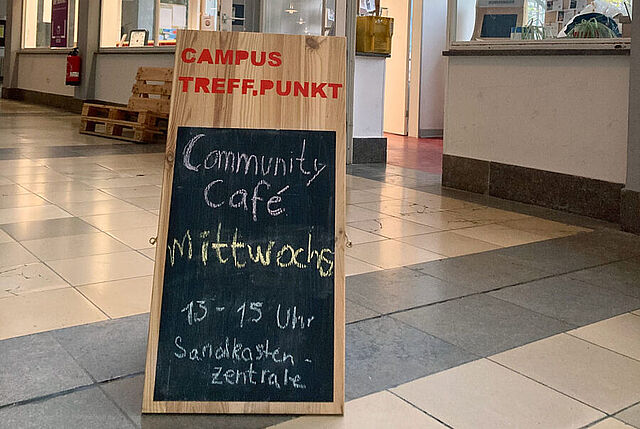 CAMPUS
TREFF.PUNKT
Community
Café
Mittwochs
13 - 15 Uhr
Sandkasten-
zentrale